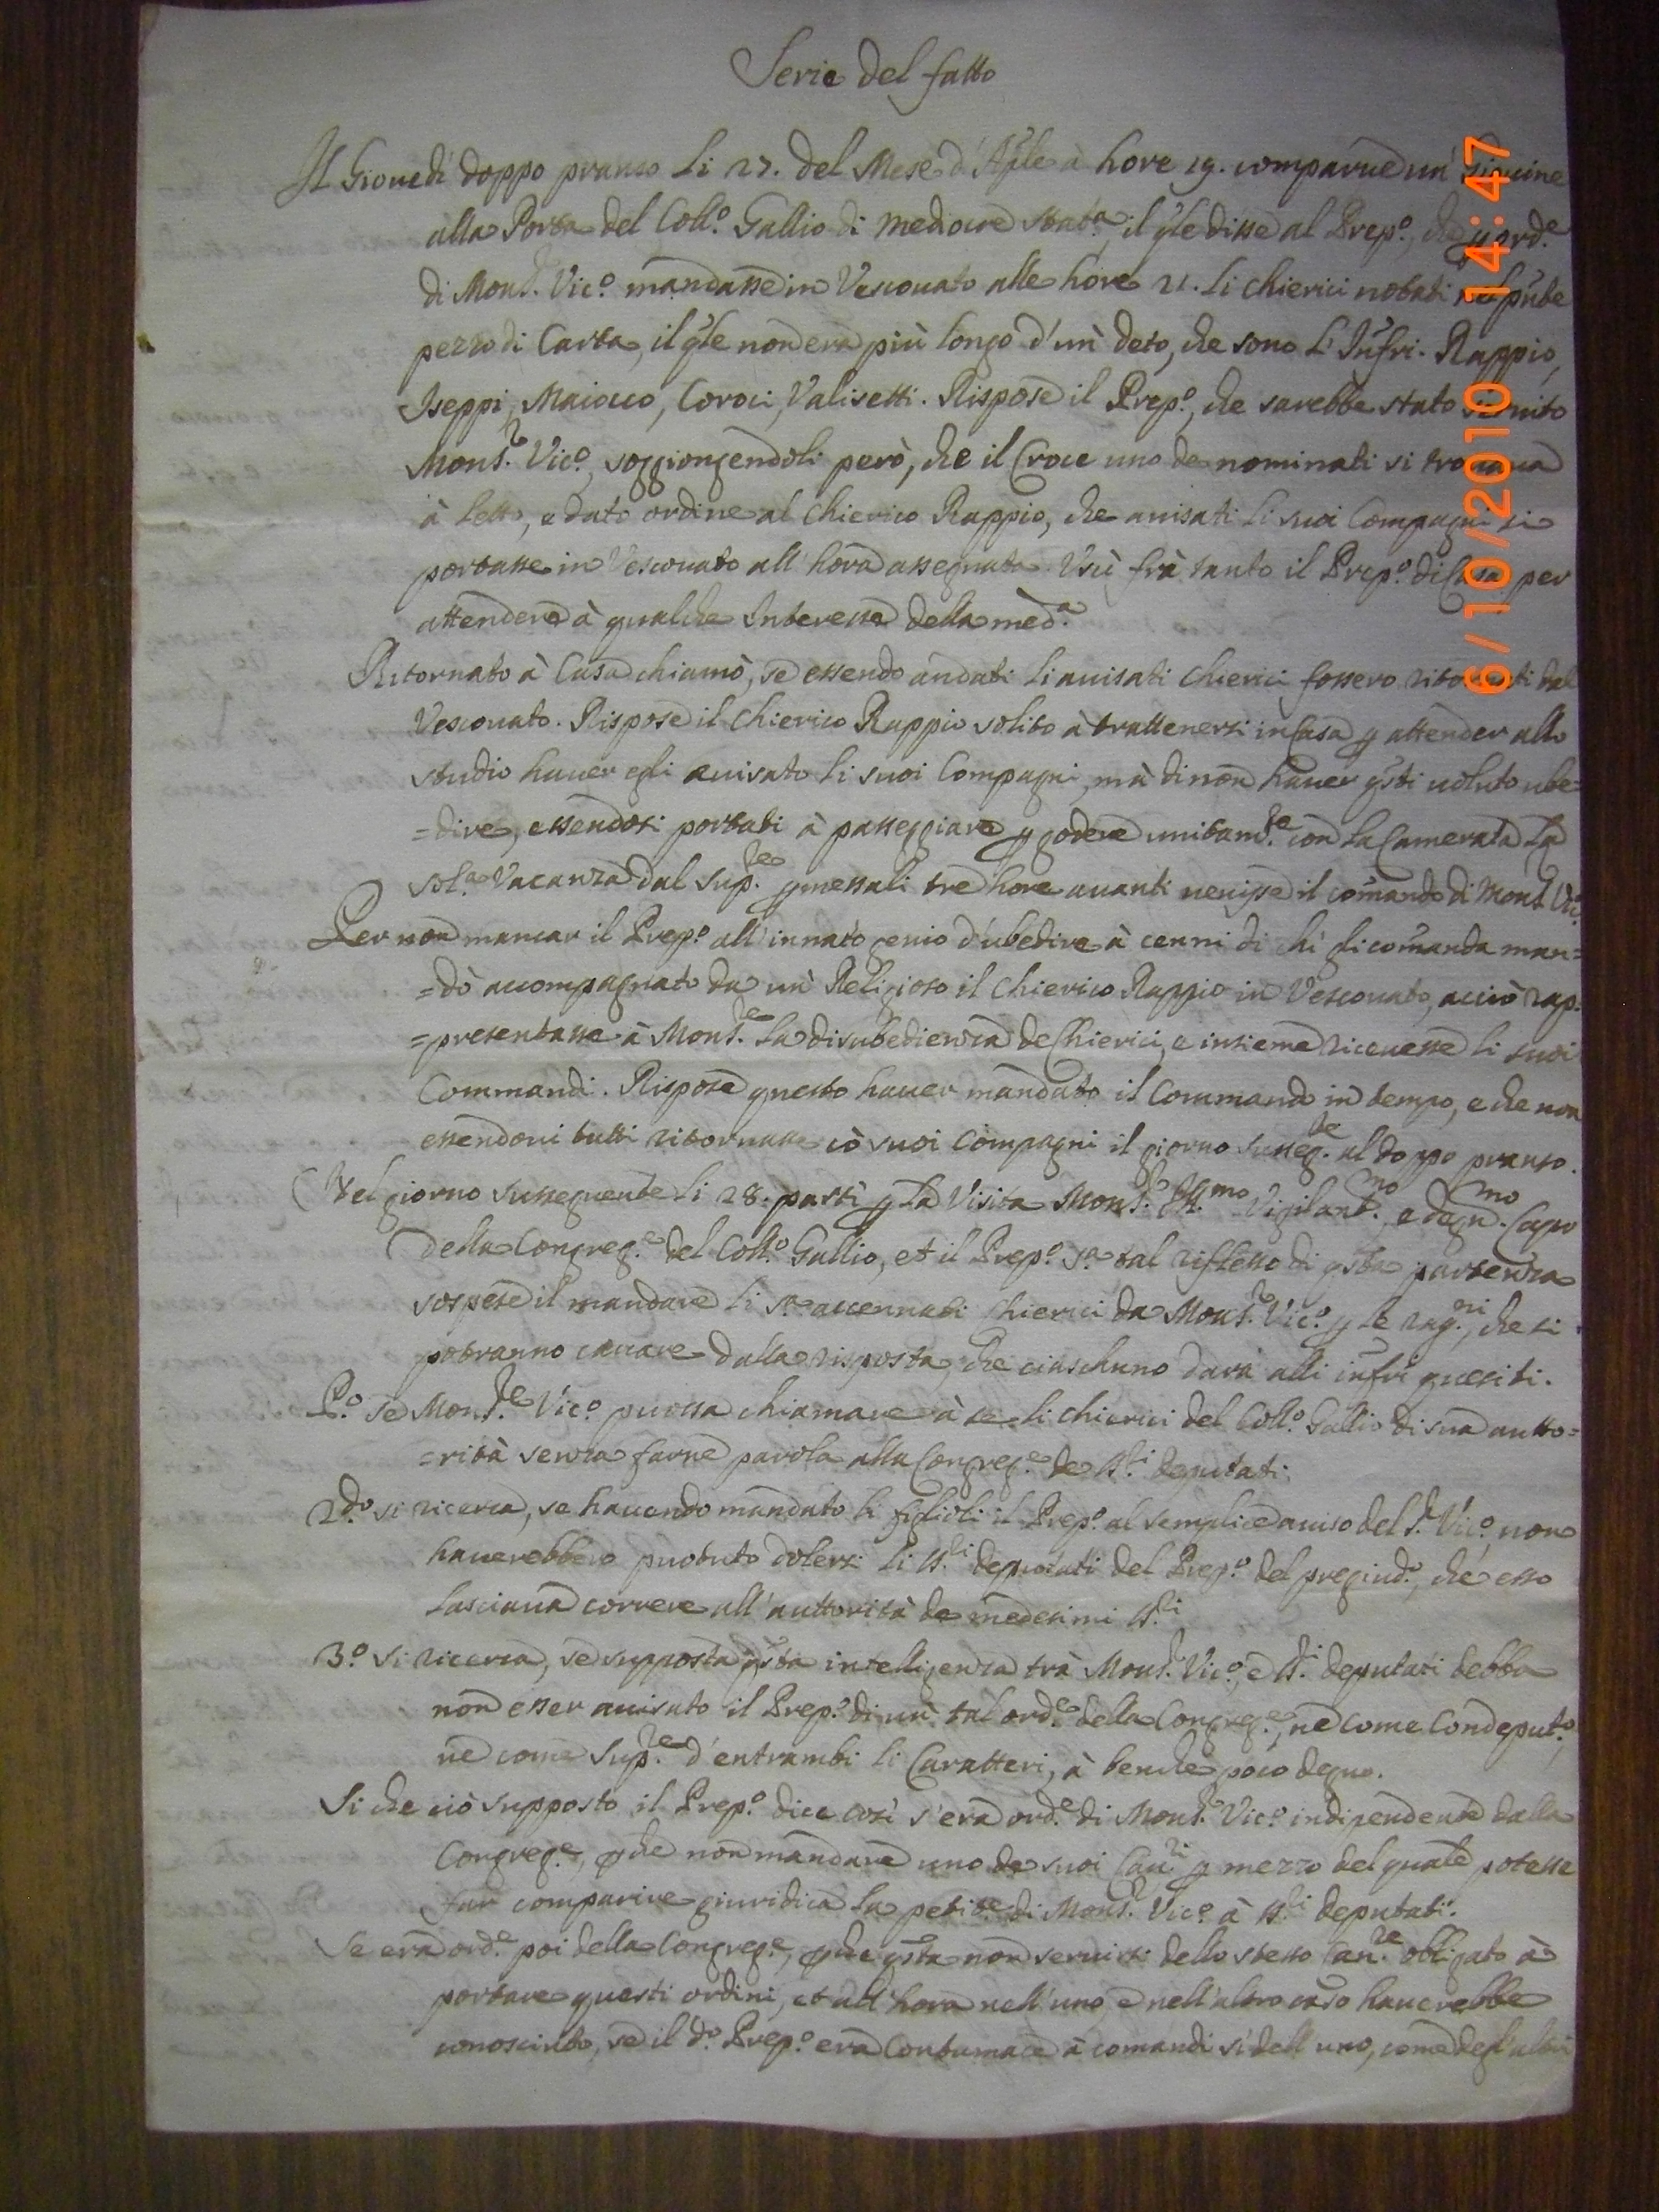 Serie del fatto
Il Giovedi doppo pranso li 27. del Mese d'Aple à hore 19. comparue un' Giouine
alla Porta del Coll.º Gallio di mediocre stat.ª, il qle disse al Prep.º, che p ord.e
di Mons.r Vic.º mandasse in Vescouato alle hore 21. li chierici notati nel pnte
pezzo di Carta, il qle non era più longo d'un deto, che sono l'Infri. Rappio,
Iseppi, Maiocco, Coroci, Valisetti. Rispose il Prep.º, che sarebbe stato seruito
Mons.r Vic.º, soggiongendoli però, che il Croce uno de nominati si trouaua
à letto, e dato ordine al Chierico Rappio, che auisati li suoi Compagni si
portasse in Vescouato all' hora assegnata. Uscì frà tanto il Prep.º di Casa per
attendere à qualche Interesse della med.ª
Ritornato à Casa chiamò, se essendo andati li auisati Chierici fossero ritornati dal
Vescouato. Rispose il Chierico Rappio solito à trattenersi in Casa p attender allo
studio hauer egli auisato li suoi Compagni, mà di non hauer qsti uoluto ube=
=dire, essendosi portati à passeggiare p godere unitam.te con la Camerata la
sol.ª Vacanza dal Sup.re pmessali tre hore auanti uenisse il comando di Mons.r Vic.º
Per non mancar il Prep.º all' innato genio d'ubedire à cenni di chi gli comanda man=
=dò accompagnato da un' Religioso il Chierico Rappio in Vescouato, acciò rap=
=presentasse à Mons.re la disubedienza de Chierici, e insieme riceuesse li suoi
Commandi. Rispose questo hauer mandato il Commando in tempo, e che non
essendoui tutti ritornasse cò suoi Compagni il giorno susseg.te al doppo pranso.
Nel giorno susseguente li 28. partì p la Visita Mons.r Ill.mo Vigilant.mo e degn.mo Capo
della Congreg.e del Coll.º Gallio, et il Prep.º s.ª tal riflesso di qsta partenza
sospese il mandare li s.ª accennati Chierici da Mons.r Vic.º p le rag.ni, che si
potranno cauare dalla risposta, che ciaschuno darà alli infri quesiti.
P.º Se Mons.re Vic.º puossa chiamare à se li chierici del Coll.º Gallio di sua autto=
=rità senza farne parola alla Congreg.e de SS.ri deputati.
2.do si ricerca, se hauendo mandato li figlioli il Prep.º al semplice auiso del S.r Vic.º, non
hauerebbero puotuto dolersi li SS.ri deputati del Prep.º del pregiud.º, che esso
lasciaua correre all' auttorità de medesimi SS.ri
3.º si ricerca, se supposta qsta intelligenza trà Mons.r Vic.º, e SS.ri deputati debba
non esser auisato il Prep.º di un' tal ord.e della Congreg.e, ne come Condeput.º,
ne come Sup.re d'entrambi li Caratteri, à benche poco degno.
Si che ciò supposto il Prep.º dice così s'era ord.e di Mons.r Vic.º indipendente dalla
Congreg.e, pche non mandare uno de suoi Can.ri p mezzo del quale potesse
far comparire giuridica la petit.e di Mons.r Vic.º à SS.ri deputati.
Se era ord.e poi della Congreg.e, pche qsta non seruirsi dello stesso Can.re obligato à
portare questi ordini, et all' hora nell' uno, e nell' altro caso hauerebbe
conosciuto, se il d.º Prep.º era Contumace à comandi sì dell' uno, come degl' altri
6/10/2010 14:47